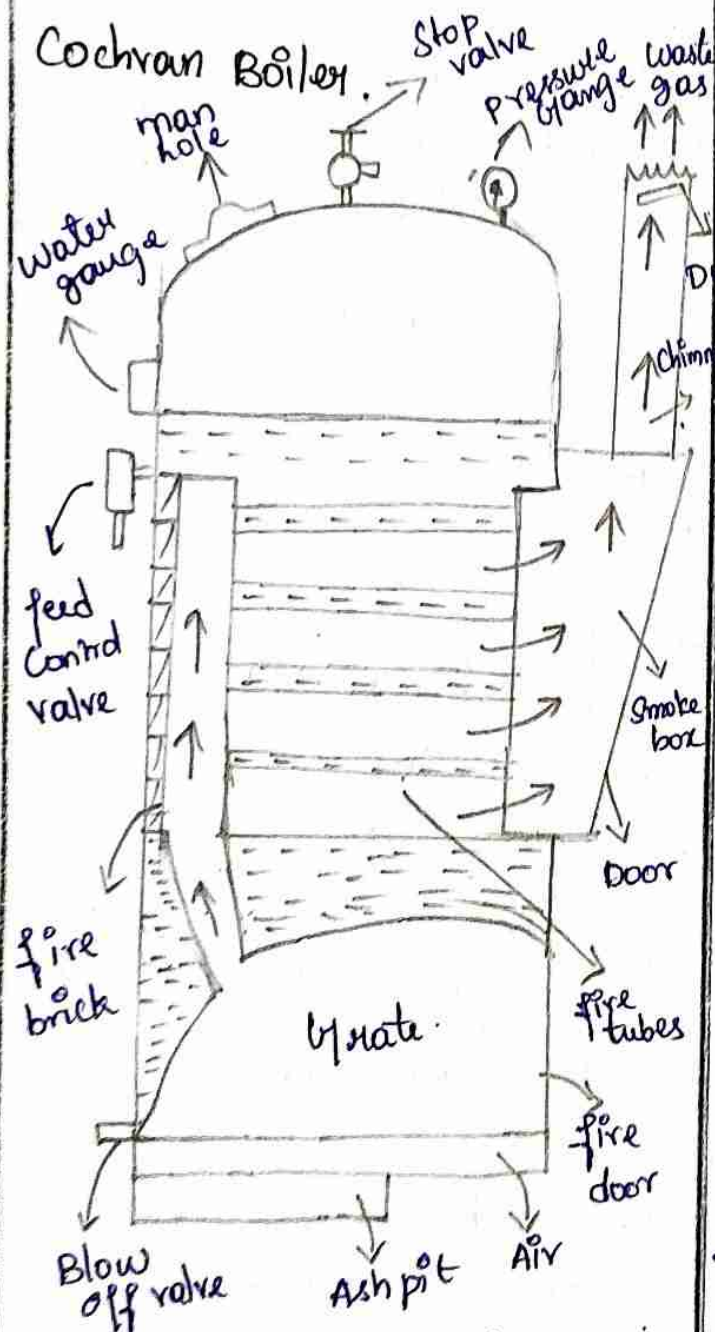 Cochran Boiler.
Stop
valve
pressure
Gange
Waste
gas
man
hole
Water
gauge
D
Chimn
feed
Control
valve
Smoke
box
Door
fire
brick
fire
tubes
Grate.
fire
door
Blow
off valve
Ash pit
Air